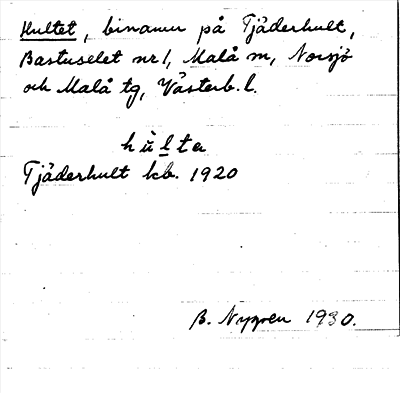 Hultet, binamn på Tjäderhult,
Bastuselet nr 1, Malå sn, Norsjö
och Malå tg, Västerb. l.
hùlta
Tjäderhult kb. 1920
B. Nygren 1930.